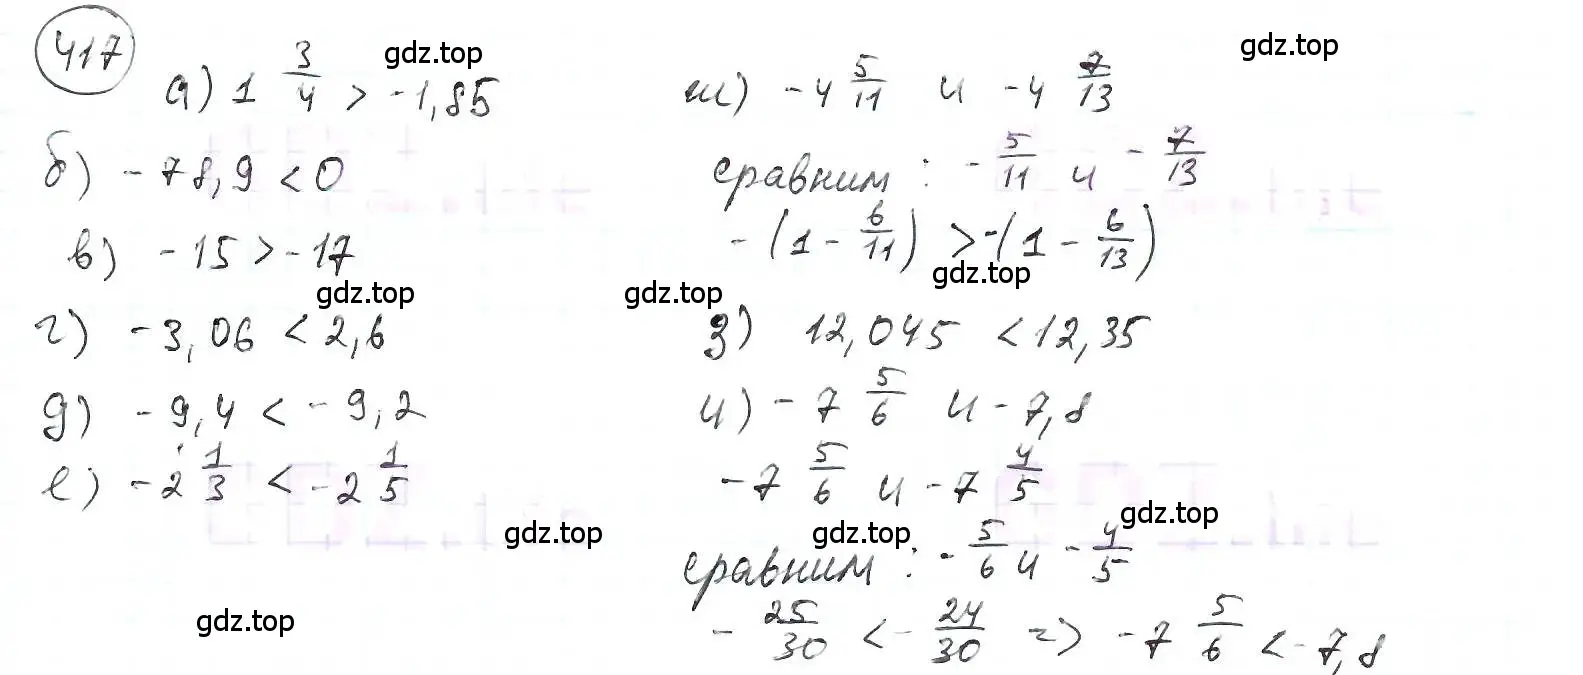 417
а) 1 3/4 > -1,85
б) -78,9 < 0
в) -15 > -17
г) -3,06 < 2,6
д) -9,4 < -9,2
е) -2 1/3 < -2 1/5
ж) -4 5/11 и -4 7/13
сравним : -5/11 и -7/13
-(1 - 6/11) > -(1 - 6/13)
з) 12,045 < 12,35
и) -7 5/6 и -7,8
-7 5/6 и -7 4/5
сравним : -5/6 и -4/5
-25/30 < -24/30 => -7 5/6 < -7,8
gdz.top
gdz.top
gdz.top
gdz.top
gdz.top
gdz.top
gdz.top
gdz.top
gdz.top